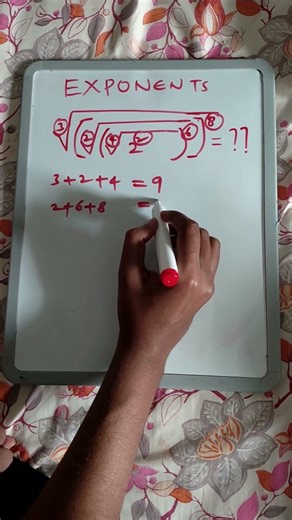 EXPONENTS
∛[(√(∜2²)⁶)]⁸ = ??
3+2+4 = 9
2+6+8 =